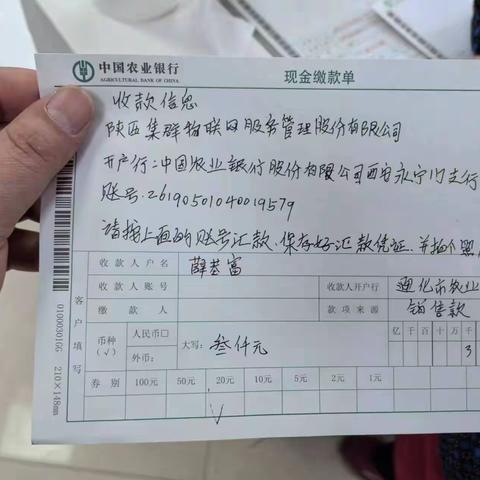 中国农业银行
AGRICULTURAL BANK OF CHINA
现金缴款单
收款信息
陕西集群物联网服务管理股份有限公司
开户行:中国农业银行股份有限公司西安永宁门支行
账号.26190501040019579
请按上面的账号汇款.保存好汇款凭证.并拍个照
客户填写
收款人户名
薛基富
收款人账号
收款人开户行
遵化市农业
缴款人
款项来源
销售款
币种(√)
人民币□
外币:
大写:
叁仟元
亿千百十万千
3
券别 100元 50元 20元 10元 5元 2元 1元
√
010003010G 210×148mm